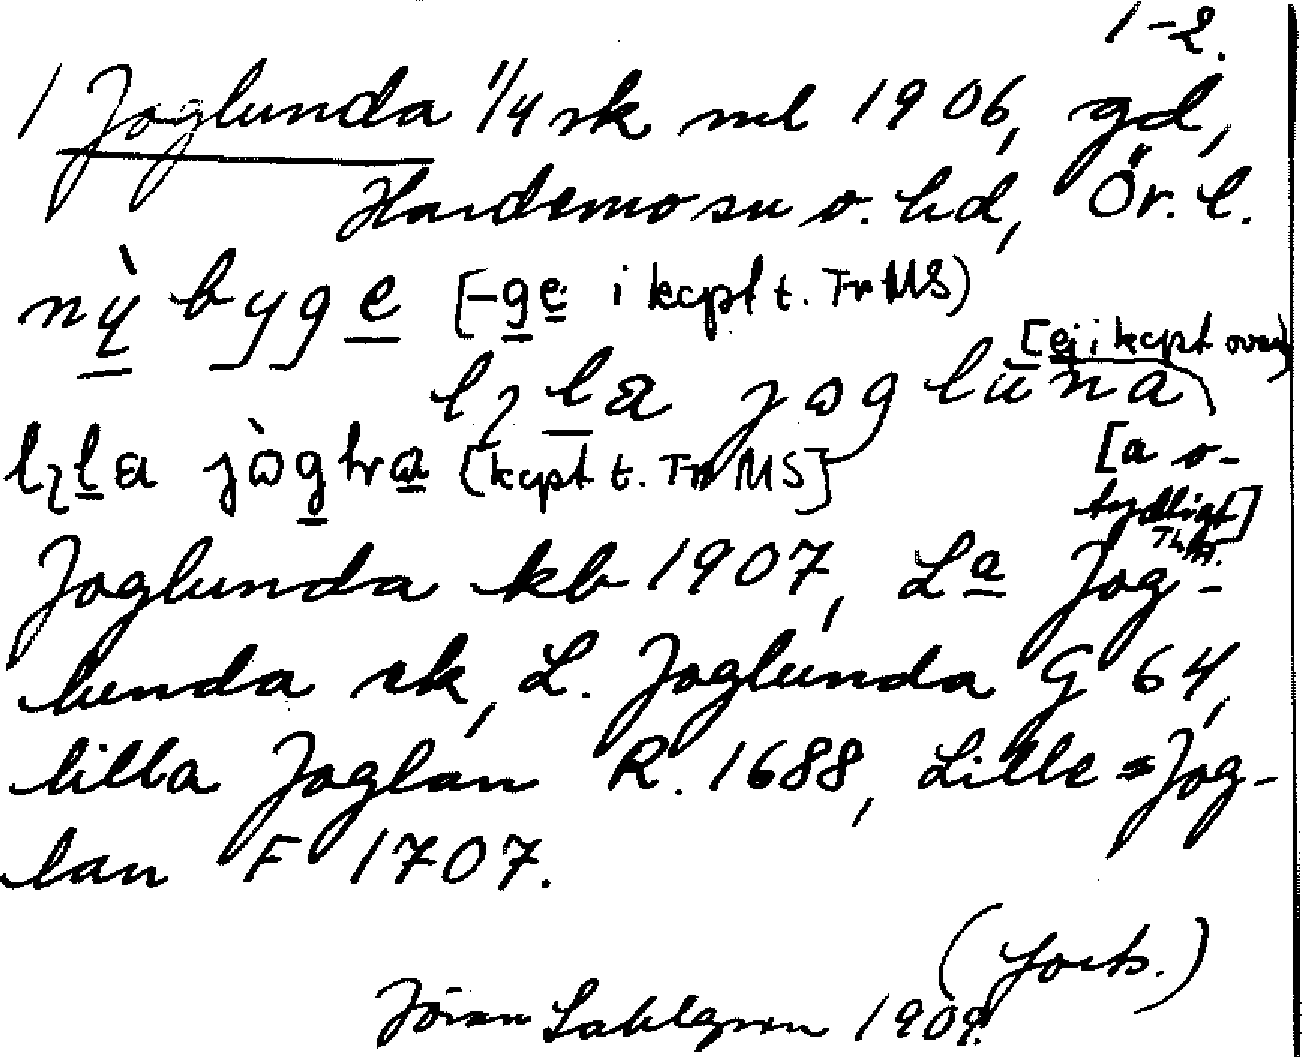 1-2.
1 Joglunda 1/4 sk ml 1906, gd,
Hardemo sn o. hd, Ör. l.
nỳ byge [-ge i kcpt t. Tr MS]
[ej i kcpt ovan]
lɩla jɷgluna
lɩla jɷ̀g [kcpt t. Tr MS]
[a o-
tydligt]
Joglunda kb 1907, La Jog-
lunda sk, L. Joglunda G 64,
lilla Joglan R. 1688, Lille=Jog-
lan F 1707.
(forts.)
Jöran Sahlgren 1909.